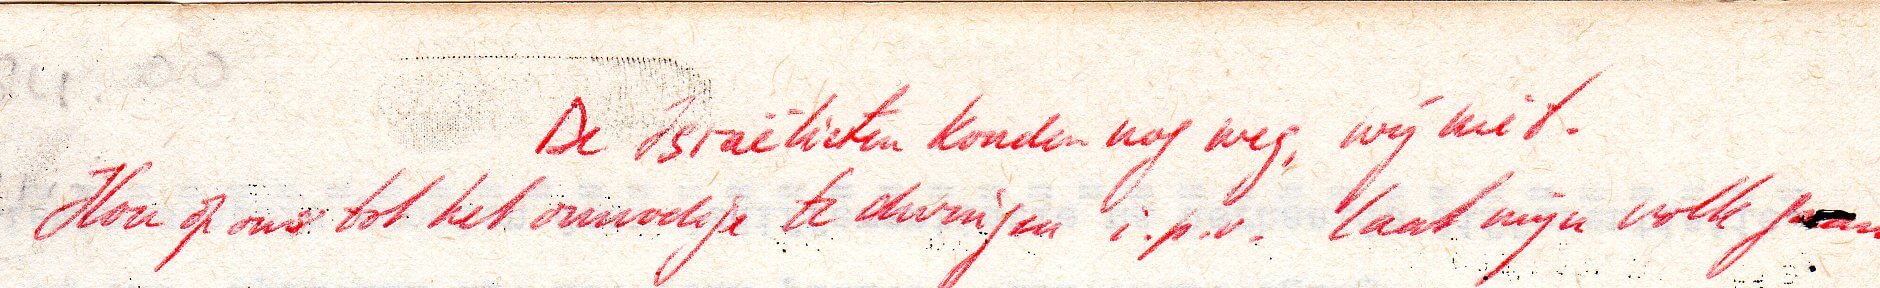 De Israëlieten konden nog weg, wij niet.
Hou op ons tot het onnodige te dwingen i.p.v. laat mijn volk gaan